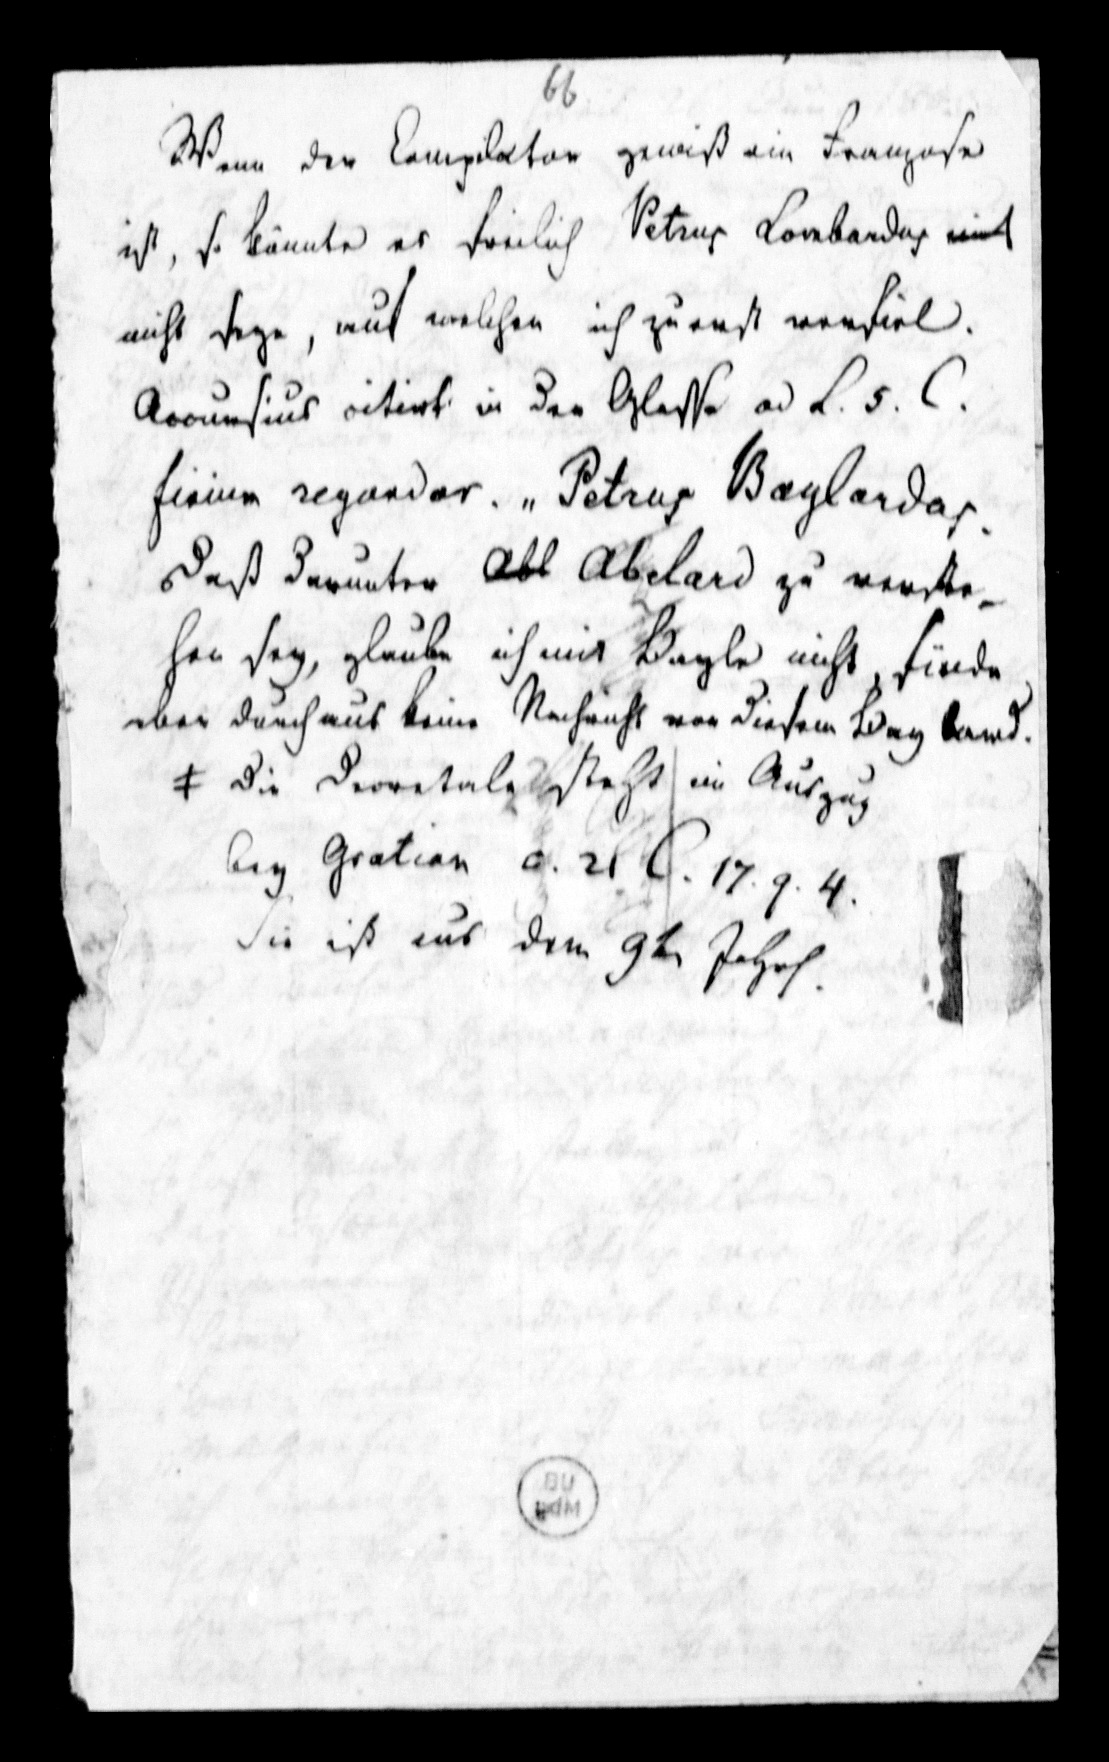 66
Wenn der Compilator gewiß ein Franzose
ist, so könnte es freilich Petrus Lombardus
nicht seyn, auf welchen ich zuerst verfiel.
Accursius citirt in der Glosse ad L. 5. C.
finium regundor. „ Petrus Baylardus.
Daß darunter Abl Abelard zu verste-
hen sey, glaube ich mit Bayle nicht, finde
aber durchaus keine Nachricht von diesem Baylard.
‡ Die Decretale steht im Auszug
bey Gratian c. 21 C. 17. q. 4.
Sie ist aus dem 9t Jahrh.
UB